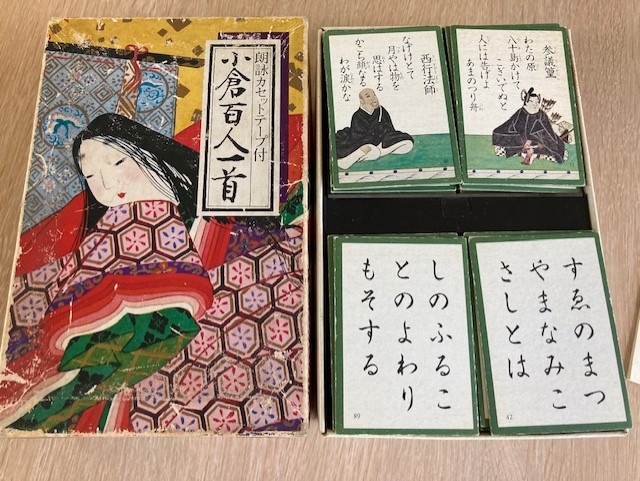 朗詠カセットテープ付
小倉百人一首
参議篁
わたの原
八十島かけて
こぎいでぬと
人には告げよ
あまのつり舟
西行法師
なげけとて
月やは物を
思はする
かこち顔なる
わが涙かな
すゑのまつ
やまなみこ
さしとは
42
しのふるこ
とのよわり
もそする
89